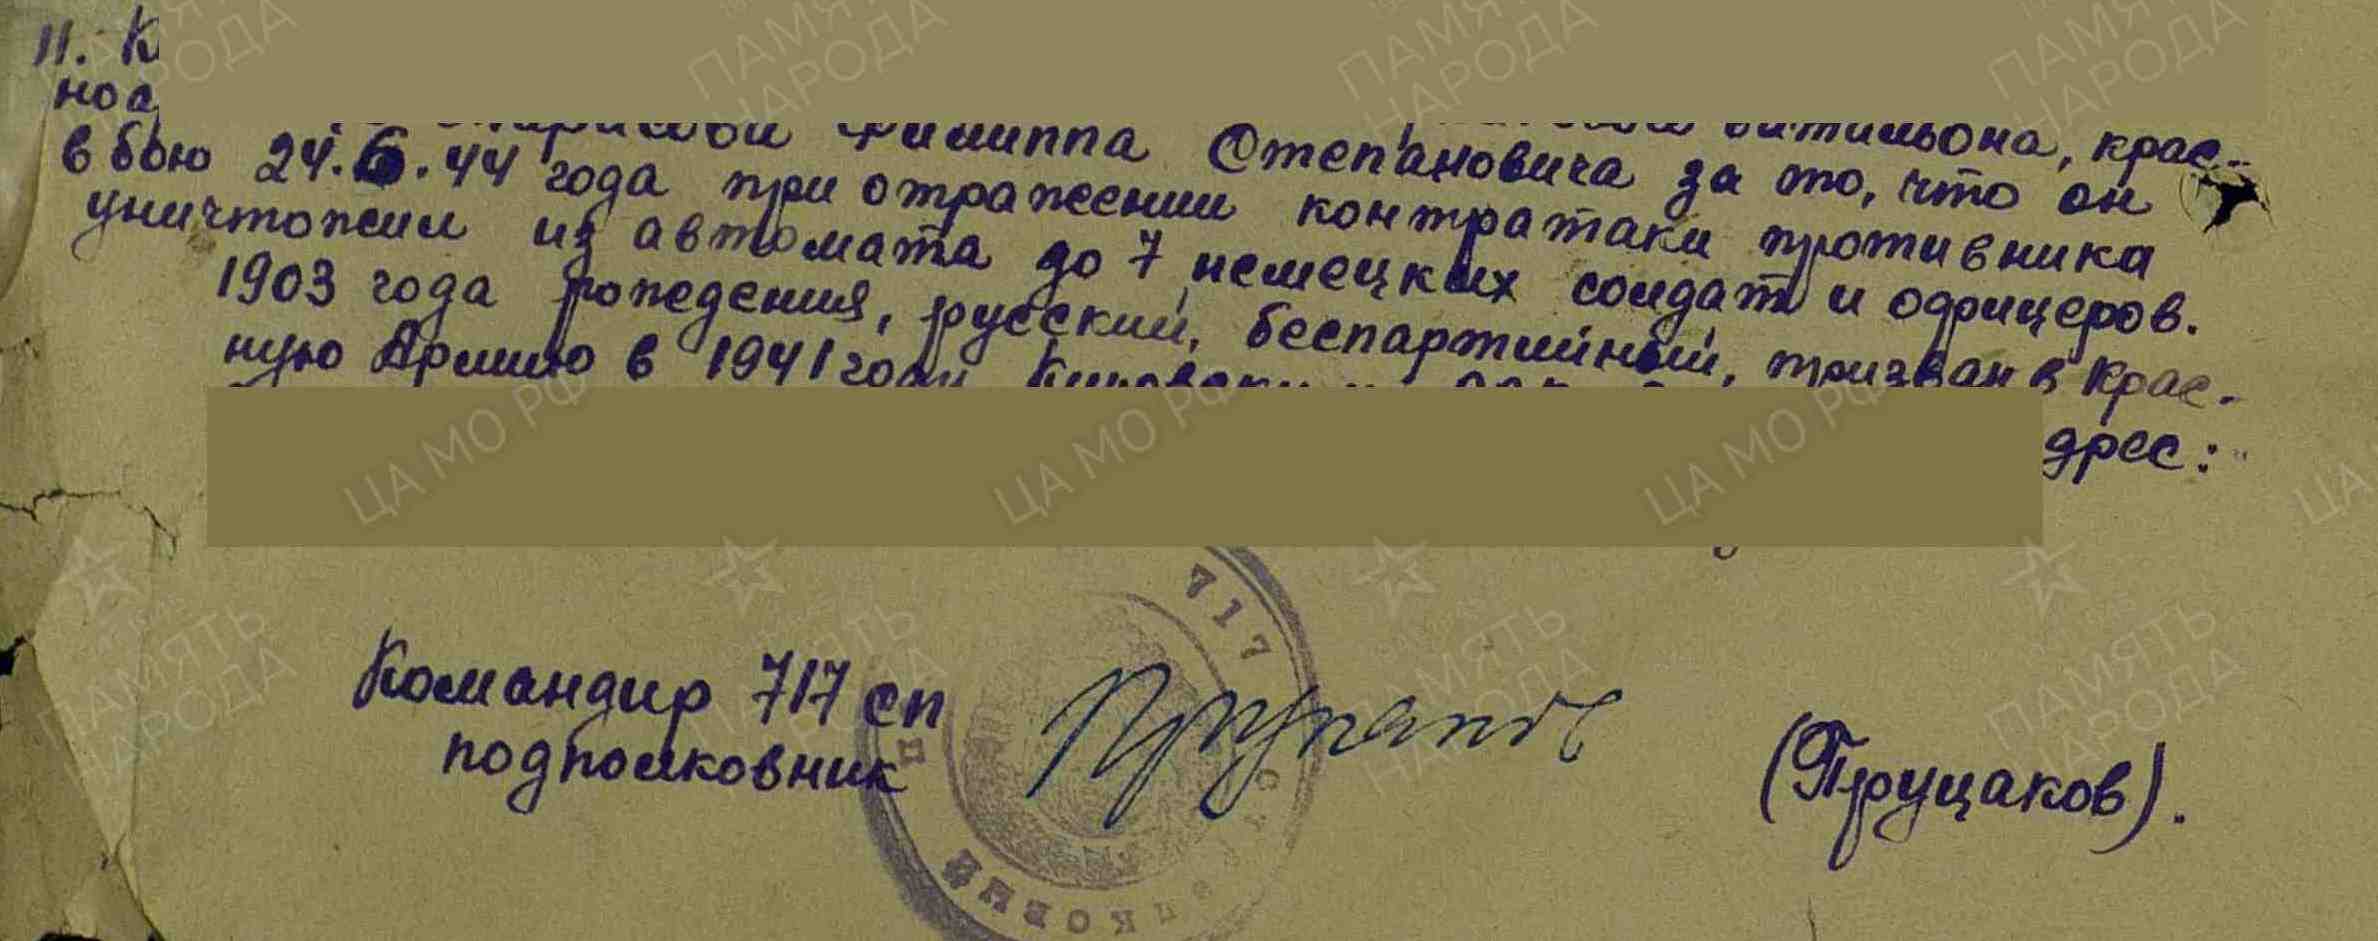 11. К
батальона, крас-
ноа Филиппа Степановича за то, что он
в бою 24.6.44 года при отражении контратаки противника
уничтожил из автомата до 7 немецких солдат и офицеров.
1903 года рождения, русский, беспартийный, призван в Крас-
ную Армию в 1941 году
дрес:
717
Командир 717 сп
подполковник
(Пруцаков).
ПАМЯТЬ НАРОДА
ЦА МО РФ